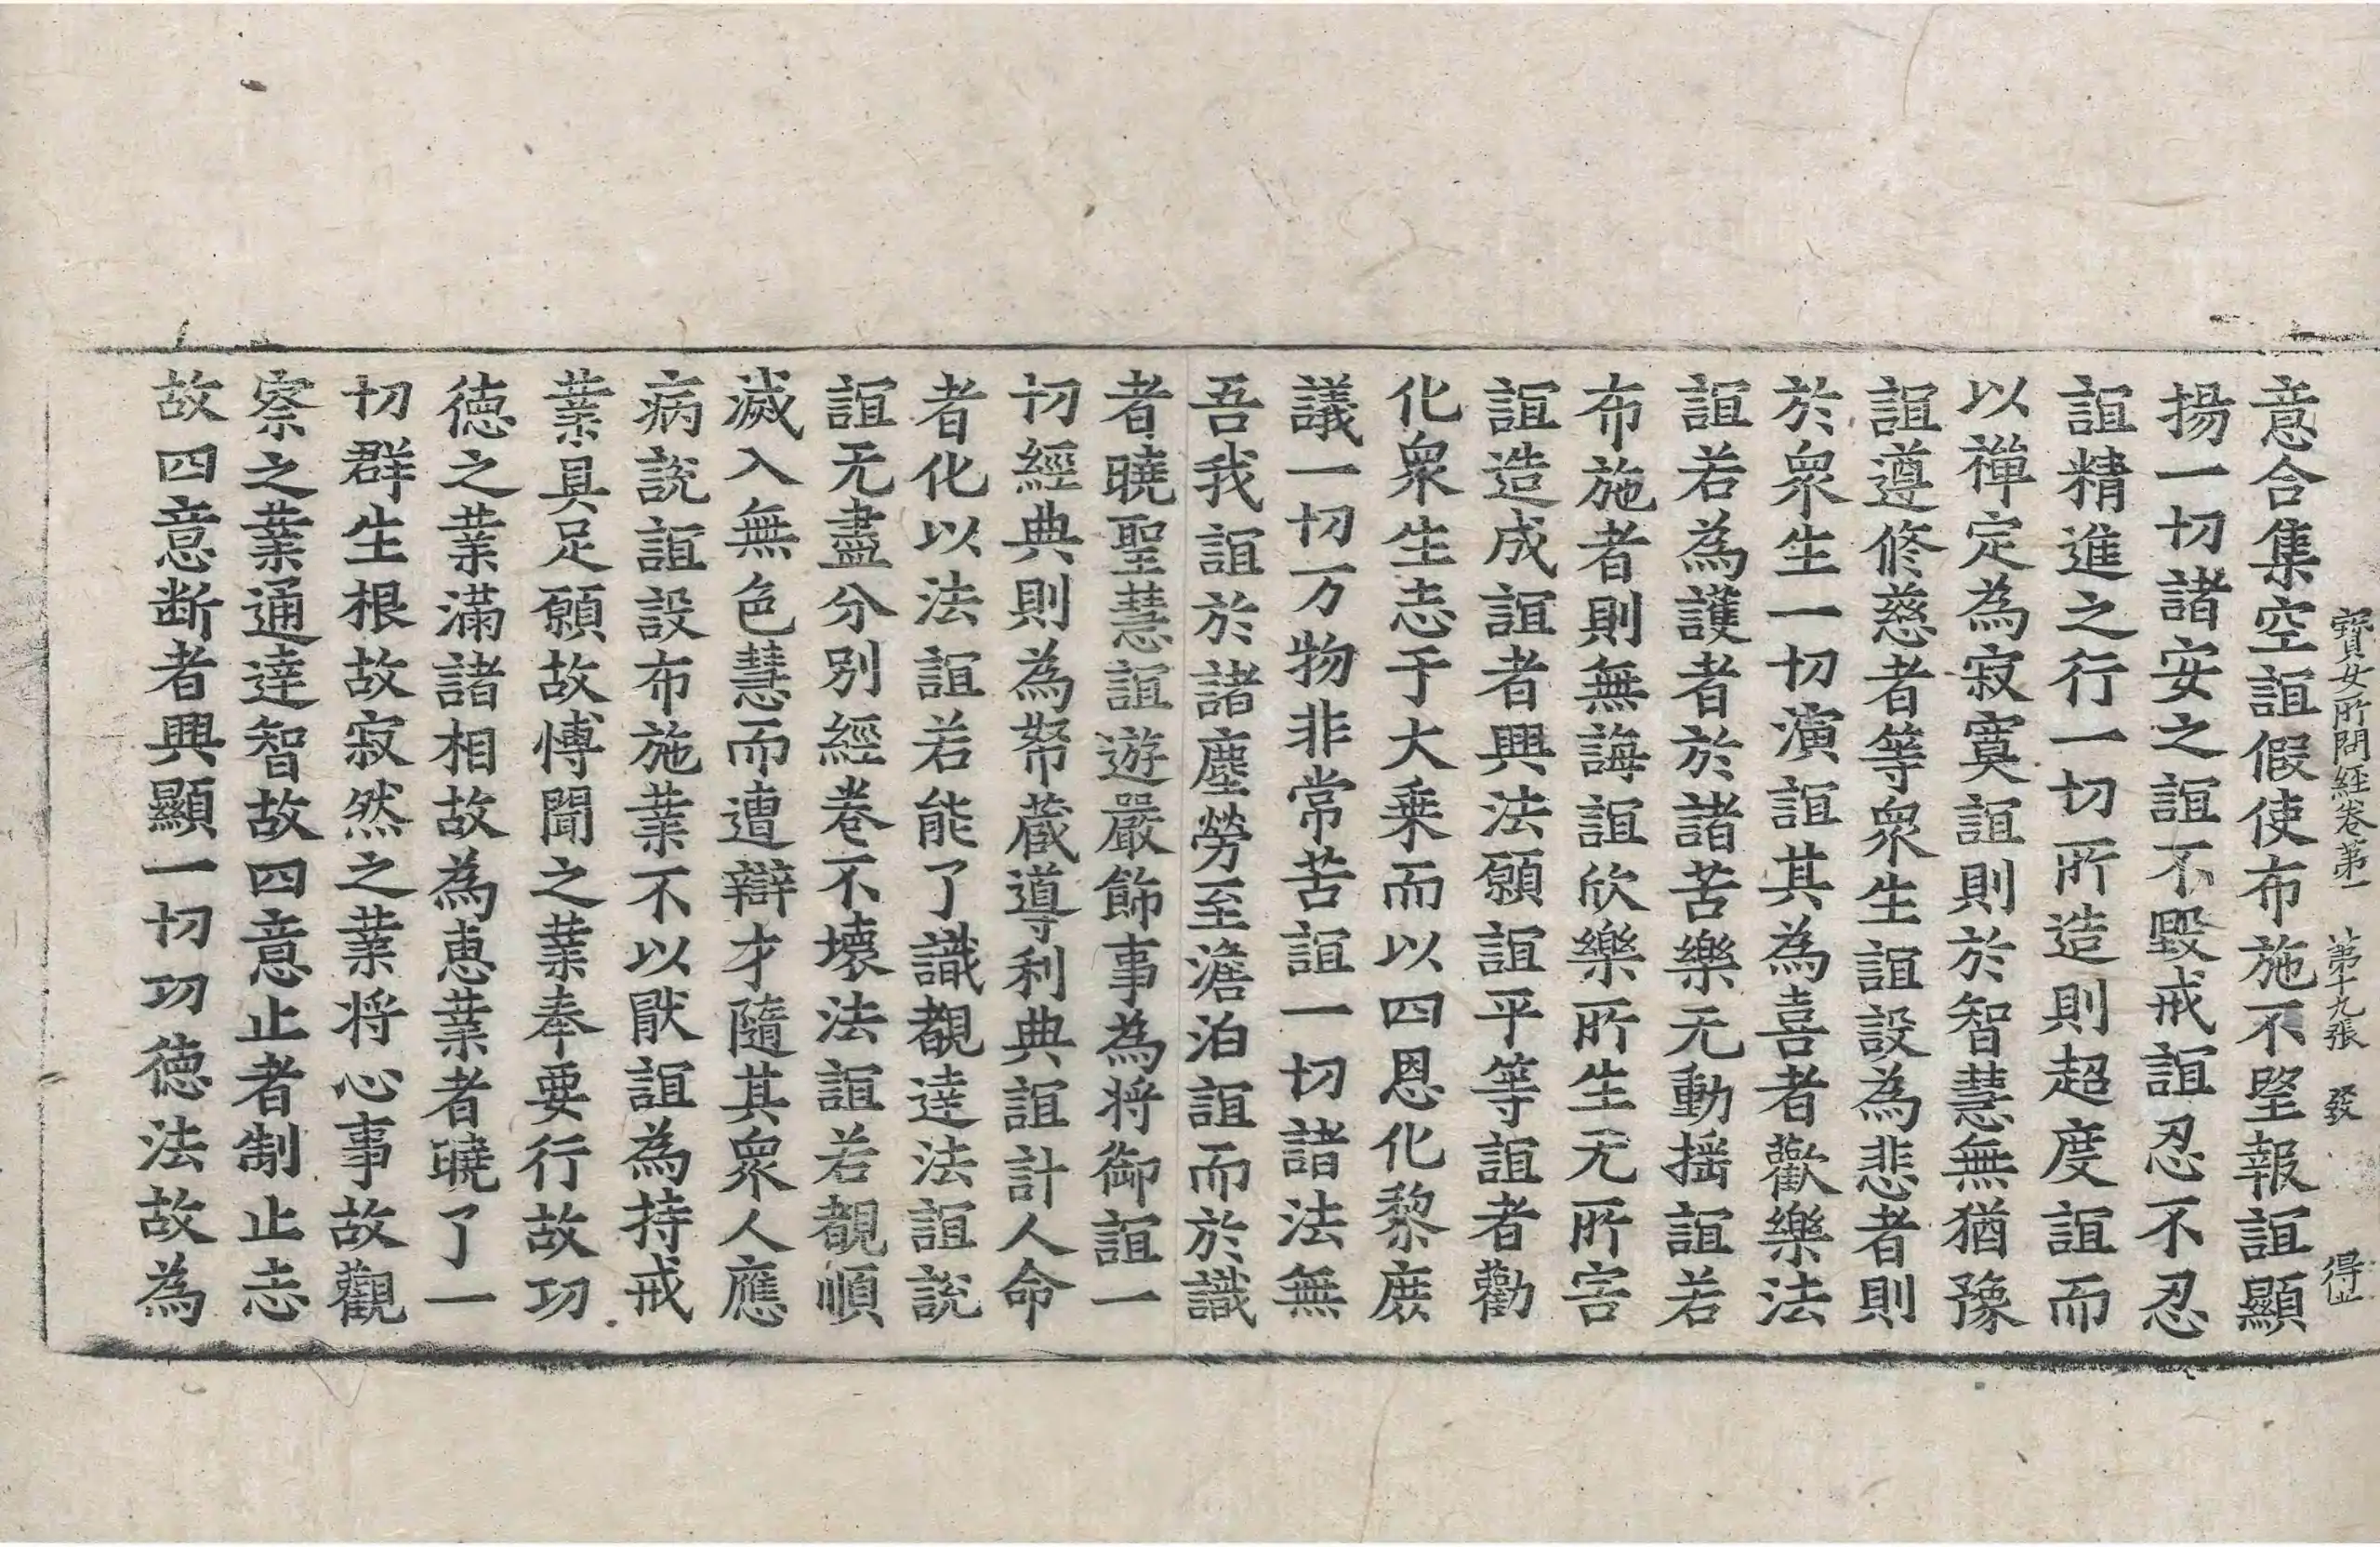 寶女所問経卷第一 第十九張 發 得止
意合集空誼假使布施不望報誼顯
揚一切諸安之誼不毀戒誼忍不忍
誼精進之行一切所造則超度誼而
以禪定為寂寞誼則於智慧無猶豫
誼遵修慈者等衆生誼設為悲者則
於衆生一切演誼其為喜者歡樂法
誼若為護者於諸苦樂无動揺誼若
布施者則無誨誼欣樂所生无所害
誼造成誼者興法願誼平等誼者勸
化衆生志于大乗而以四恩化黎庻
議一切万物非常苦誼一切諸法無
吾我誼於諸塵勞至澹泊誼而於識
者曉聖慧誼遊嚴飾事為将御誼一
切經典則為帑蔵導利典誼計人命
者化以法誼若能了識覩達法誼說
誼无盡分别經卷不壞法誼若覩順
滅入無色慧而遭辯才隨其衆人應
病說誼設布施業不以猒誼為持戒
業具足願故愽聞之業奉要行故功
徳之業滿諸相故為恵業者曉了一
切群生根故寂然之業将心事故觀
察之業通達智故四意止者制止志
故四意断者興顯一切功徳法故為